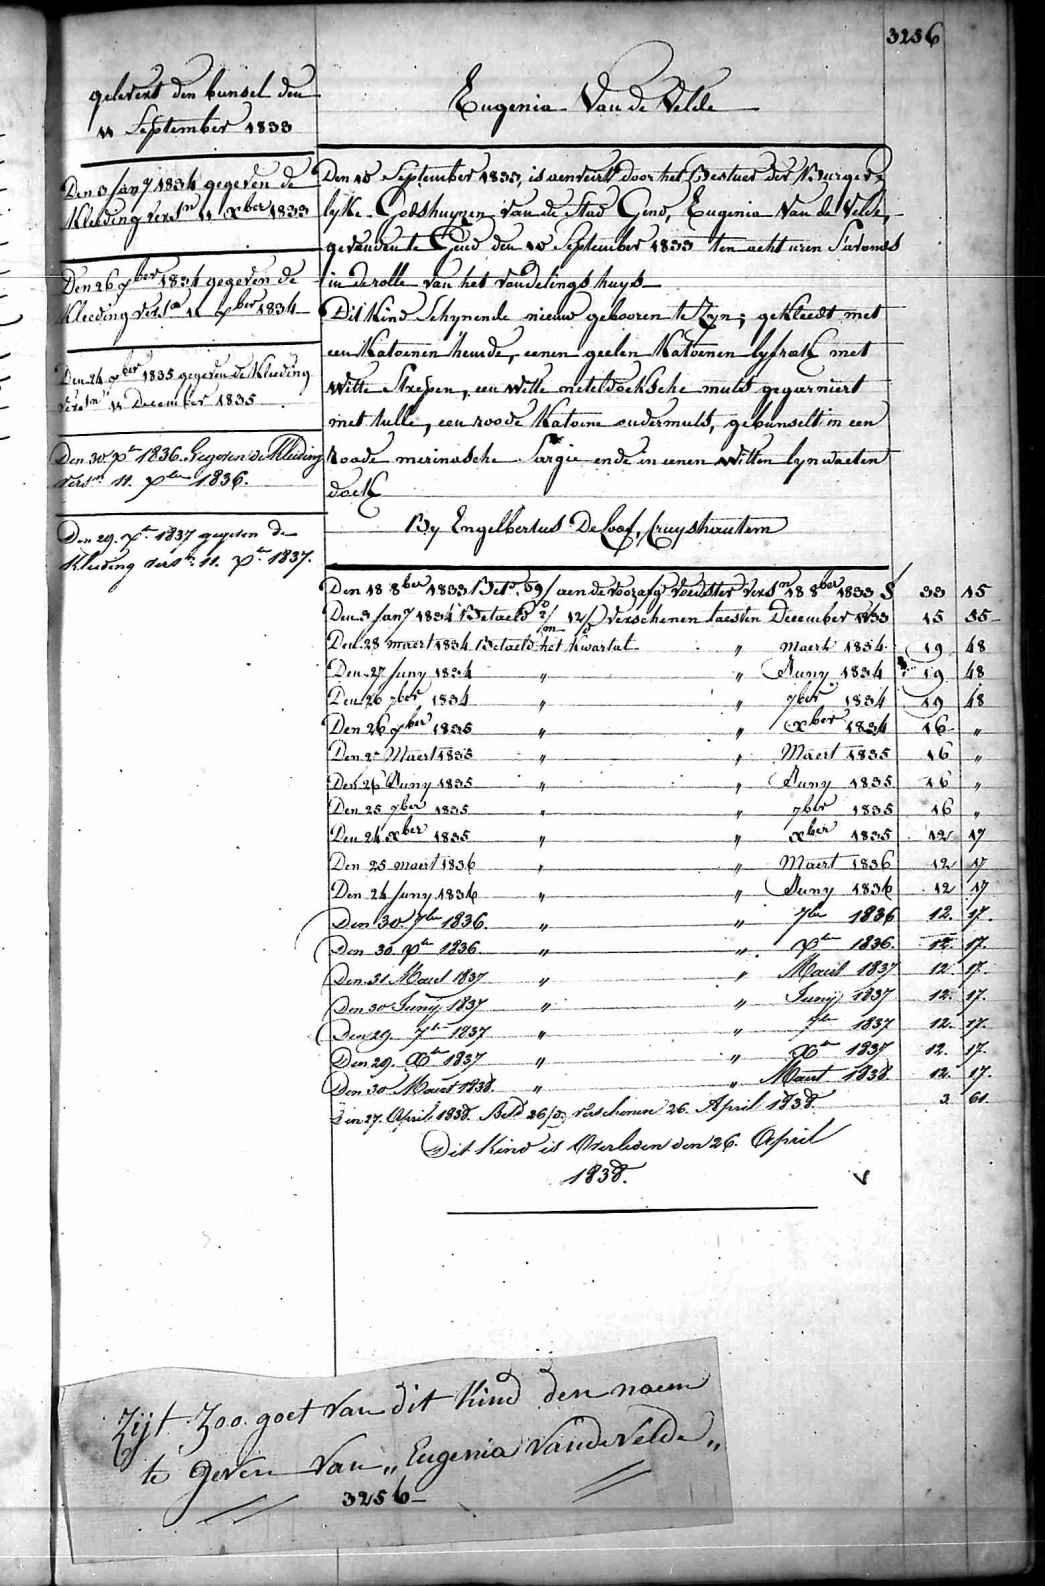 3256
gelevert den bunsel den
11 September 1833
Eugenia Van de Velde
Den 3 Jany 1834 gegeven de
Kleeding verse.n 11 xber 1833
Den 26 7ber 1834 gegeven de
Kleeding vers.n 11 7ber 1834
Den 24 xber 1835 gegeven de Kleeding
vers.n 11 December 1835
Den 30 xber 1836. Gegeven de Kleeding
vers.n 11. xber 1836.
Den 29. xber 1837 gegeven de
Kleeding vers.n 11. xber 1837.
Den 10 September 1833, is aenveerd door het Bestuer der Burger-
lyke Godshuyzen van de Stad Gend, Eugenia Van de Velde,
gevonden te Gend den 10 September 1833 ten acht uren S'avonds
in de rolle van het vondelingshuys
Dit Kind Schynende nieuw gebooren te Zyn; gekleedt met
een Katoenen hemde, eenen geelen Katoenen lyfrok met
witte Streepen, een witte neteldoeksche muts gegarniert
met tulle, een roode Katoene ondermuts, gebunselt in een
Roode merinosche Sargie ende in eenen witten lynwaeten
doek
By Engelbertus De Loof, Cruyshautem
Den 18 8ber 1833 Bet. 59/ aen de voorzeg voedster vers.n 18 8ber 1833 33 15
Den 3 Jany 1834 Betaeld 12/ verschenen laesten December 1833 15 35
Den 28 maert 1834 Betaeld het Kwartal " Maert 1834 19 48
Den 27 Juny 1834 " " Juny 1834 19 48
Den 26 7ber 1834 " " 7ber 1834 19 48
Den 26 xber 1835 " " xber 1834 16 "
Den 2 Maert 1835 " " Maert 1835 16 "
Den 26 Juny 1835 " " Juny 1835 16 "
Den 25 7ber 1835 " " 7ber 1835 16 "
Den 24 xber 1835 " " xber 1835 12 17
Den 25 maert 1836 " " Maert 1836 12 17
Den 24 Juny 1836 " " Juny 1836 12 17
Den 30. 7ber 1836. " " 7ber 1836 12. 17.
Den 30 xber 1836. " " xber 1836. 12. 17.
Den 31 Maert 1837 " " Maert 1837 12. 17.
Den 30 Juny 1837 " " Juny 1837 12. 17.
Den 29. 7ber 1837 " " 7ber 1837 12. 17.
Den 29. Xber 1837 " " Xber 1837 12. 17.
Den 30 Maert 1838. " " Maert 1838 12. 17.
Den 27. April 1838. Beld 26/d. verschenen 26. April 1838. 3 61.
Dit Kind is Overleden den 26. April
1838.
Zijt zoo goet van dit Kind den naem
te geven van „Eugenia Van de Velde„
3256